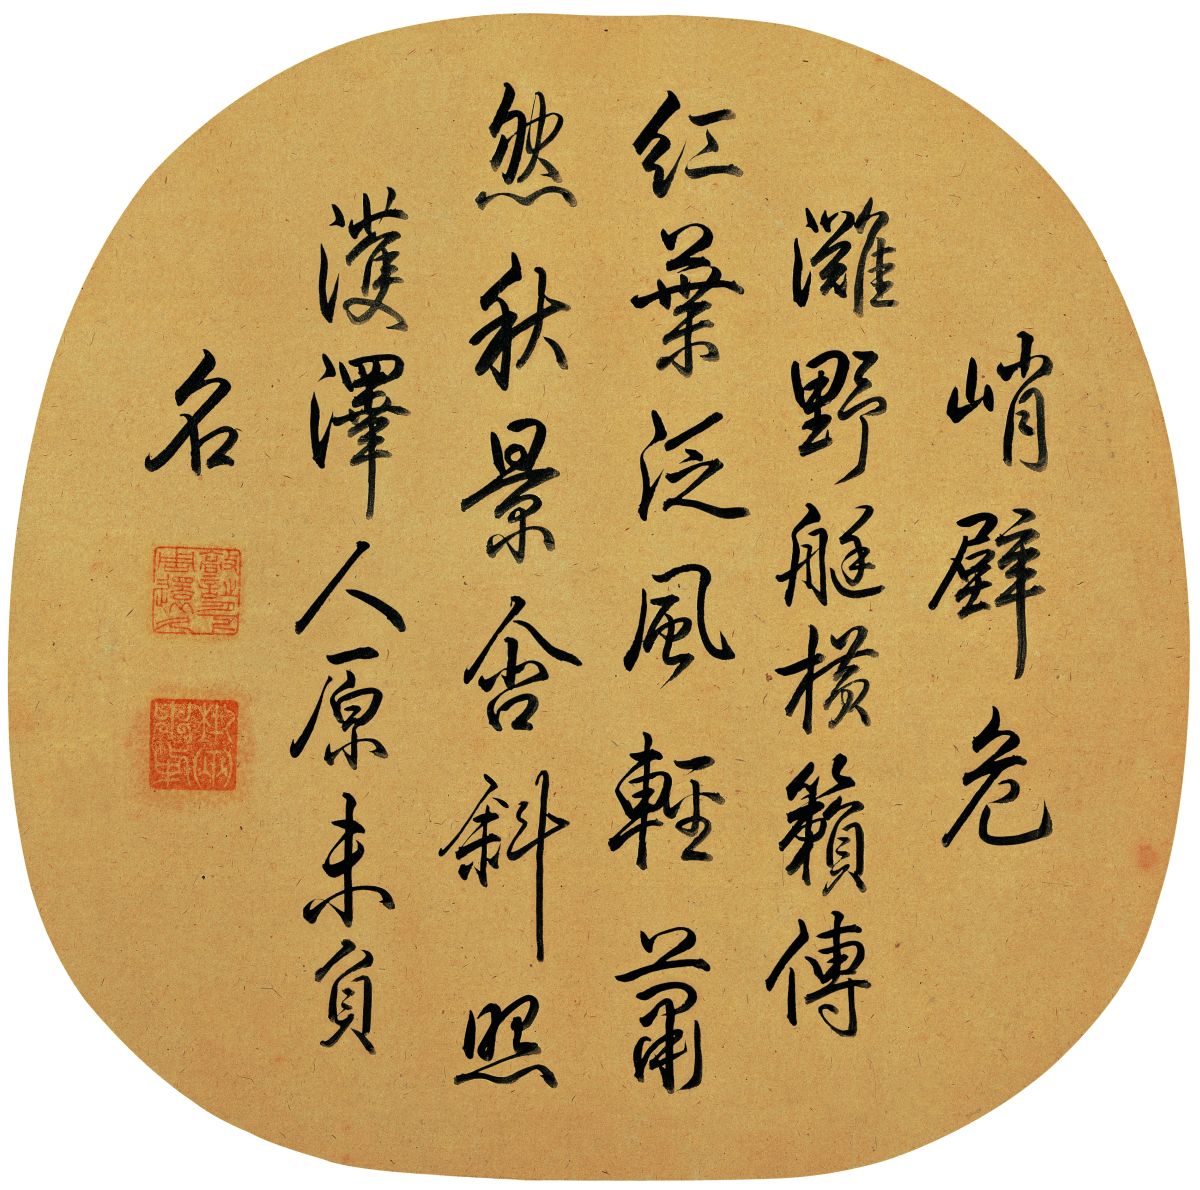 峭壁危
灘野艇橫籟傳
紅葉泛風輕蕭
然秋景含斜照
濩澤人原未負
名